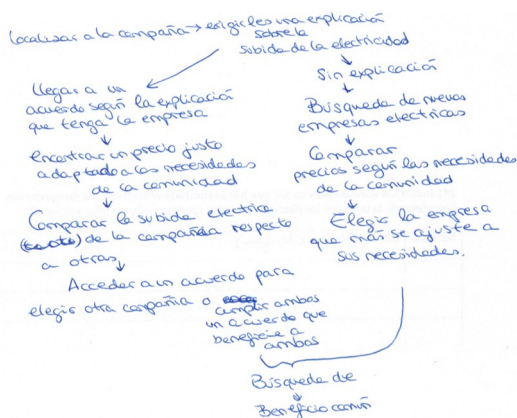 Localizar a la compañía → exigirles una explicación
sobre la
subida de la electricidad
Llegar a un
acuerdo según la explicación
que tenga la empresa
encontrar un precio justo
adaptado a las necesidades
de la comunidad
Comparar la subida electrica
de la compañía respecto
a otras
Acceder a un acuerdo para
elegir otra compañía o
cumplir ambas
un acuerdo que
beneficie a
ambas
Sin explicación
Búsqueda de nuevas
empresas electricas
Comparar
precios según las necesidades
de la comunidad
Elegir la empresa
que más se ajuste a
sus necesidades.
Búsqueda de
Beneficio común